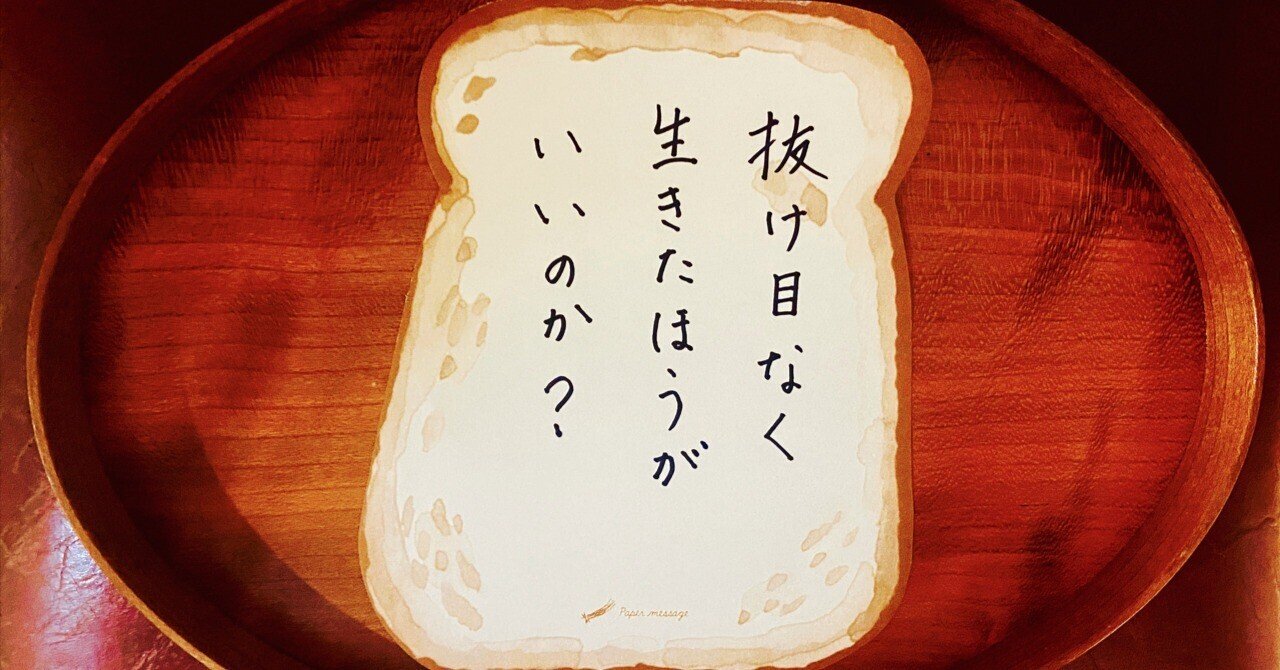 抜け目なく
生きたほうが
いいのか?
Paper message